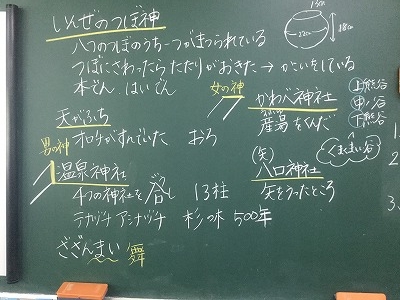 しんぜのつぼ神
八つのつぼのうち一つがまつられている
つぼにさわったらたたりがおきた→かこいをしている
本でん はいでん
13cm
22cm
18cm
天がふち
オロチがすんでいた おろ
男の神
温泉神社
4つの神社を合し 13柱
テナヅチ アシナヅチ 杉の木 500年
ざざんまい 舞
女の神
かわべ神社
産湯をくんだ
(矢)
八口神社
矢をうったところ
上熊谷
中ノ谷
下熊谷
くまくまい谷
1.
2
3.